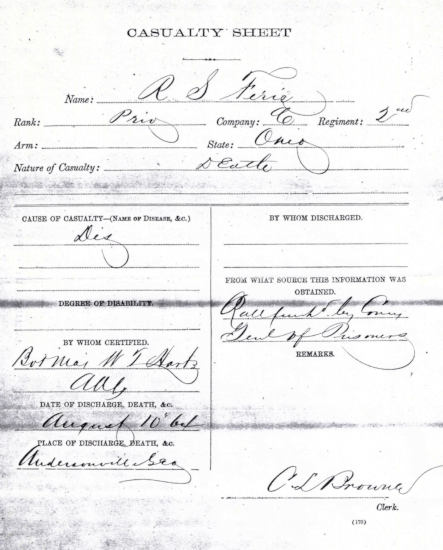 CASUALTY SHEET
Name: R. S Ferie
Rank: Priv Company: E Regiment: 2nd
Arm: State: Ohio
Nature of Casualty: Death
CAUSE OF CASUALTY—(NAME OF DISEASE, &C.)
Dis
DEGREE OF DISABILITY.
BY WHOM CERTIFIED.
Bvt Maj W T Hartz
AAG
DATE OF DISCHARGE, DEATH, &C.
August 10" 64
PLACE OF DISCHARGE, DEATH, &C.
Andersonville Geo
BY WHOM DISCHARGED.
FROM WHAT SOURCE THIS INFORMATION WAS
OBTAINED.
Roll by Comy
Genl of Prisoners
REMARKS.
C L Browne
Clerk.
(179)